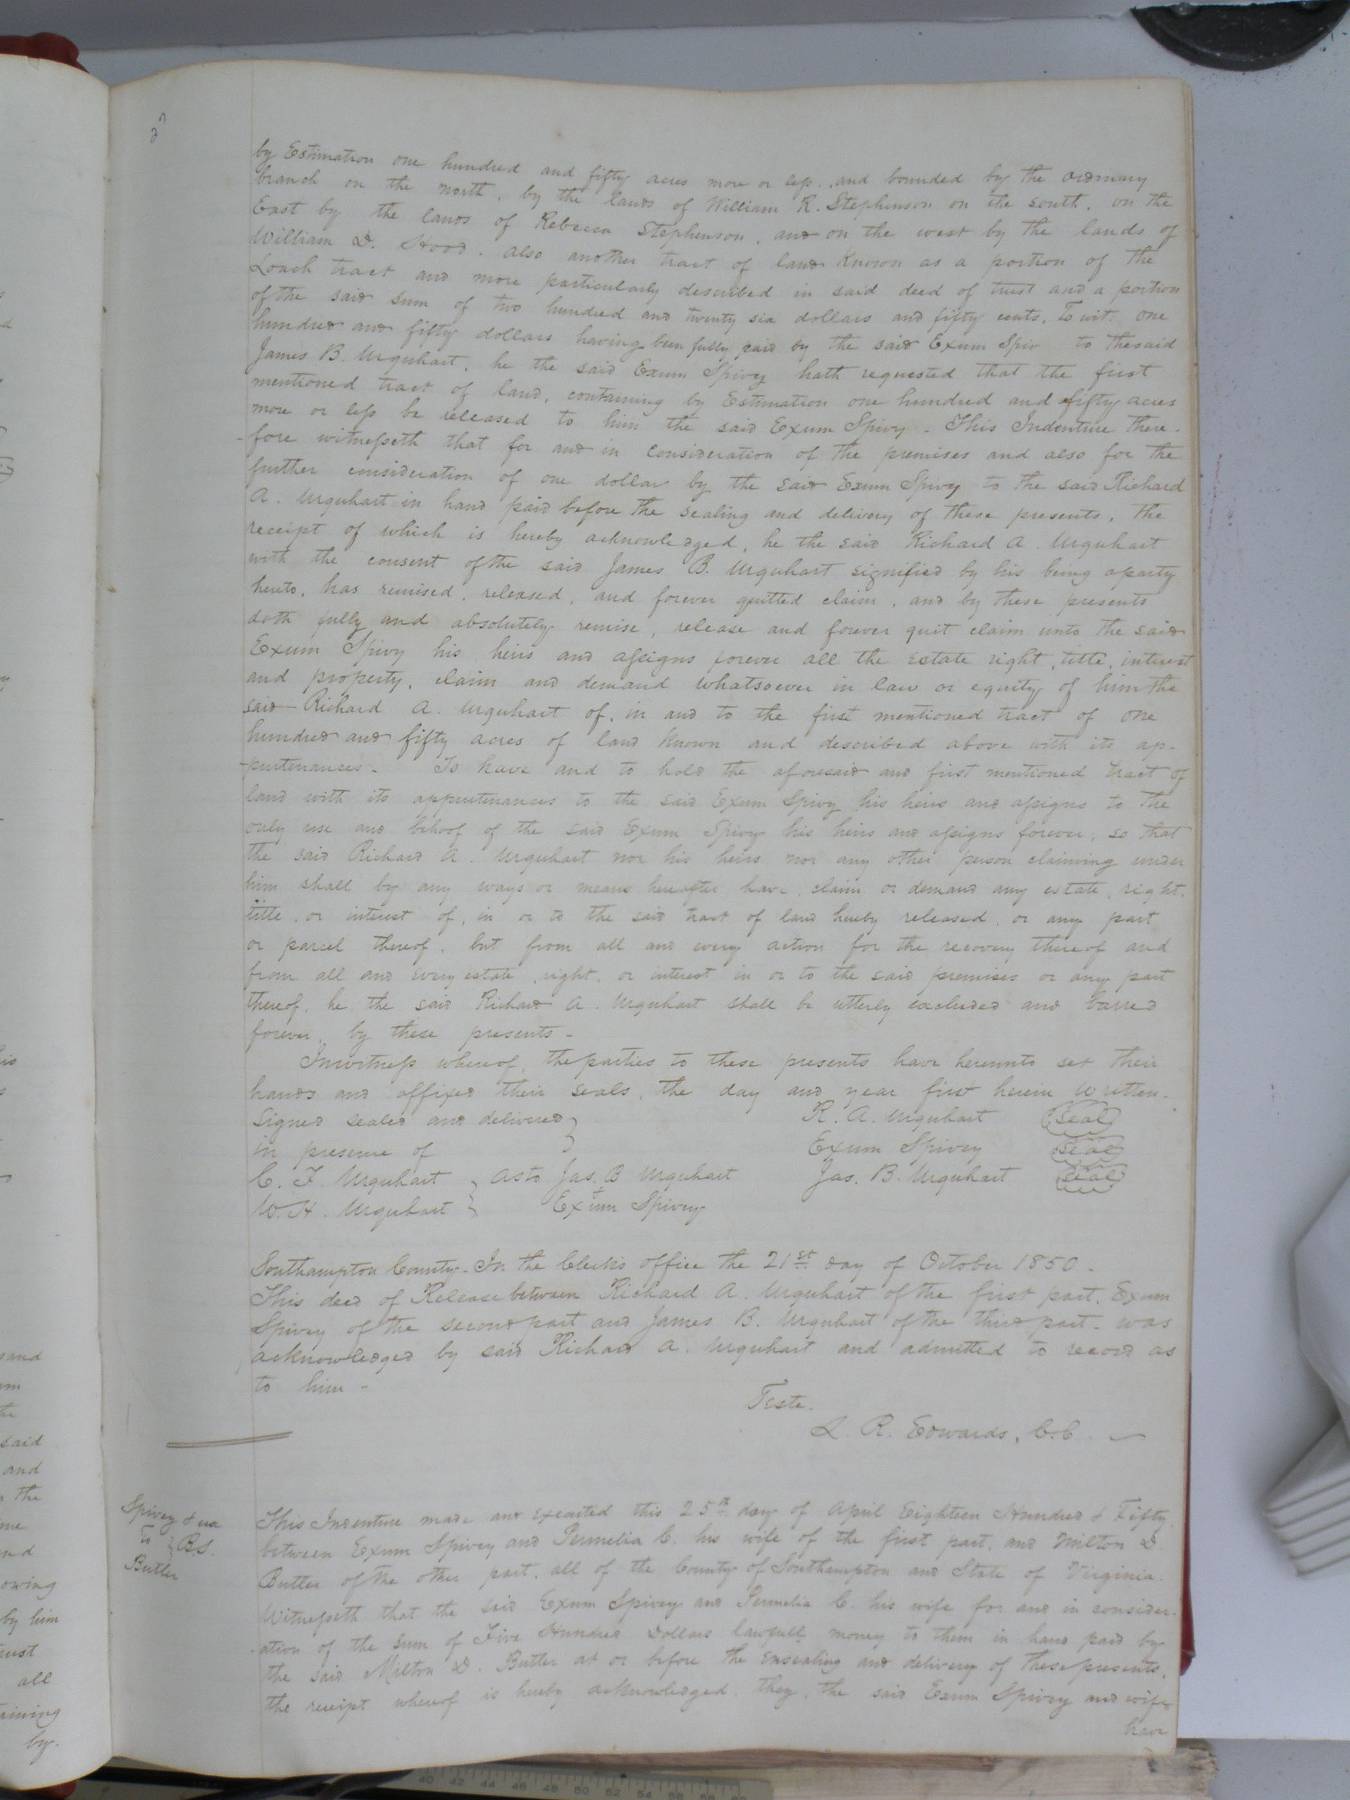 by Estimation one hundred and fifty acres more or less, and bounded by the ordinary
branch on the north, by the lands of William R. Stephenson on the south, on the
East by the lands of Rebecca Stephenson, and on the west by the lands of
William D. Hood. Also another tract of land known as a portion of the
Loach tract and more particularly described in said deed of trust and a portion
of the said sum of two hundred and twenty six dollars and fifty cents, To wit, one
hundred and fifty dollars having been fully paid by the said Exum Spiv to the said
James B. Urquhart, he the said Exum Spivey hath requested that the first
mentioned tract of land, containing by Estimation one hundred and fifty acres
more or less be released to him the said Exum Spivy - This Indenture there-
-fore witnesseth that for and in consideration of the premises and also for the
further consideration of one dollar by the said Exum Spivy to the said Richard
A. Urquhart in hand paid before the sealing and delivery of these presents, the
receipt of which is hereby acknowledged, he the said Richard A. Urquhart
with the consent of the said James B. Urquhart signified by his being a party
hereto, has remised, released, and forever quitted claim, and by these presents
doth fully and absolutely remise, release and forever quit claim unto the said
Exum Spivy his heirs and assigns forever all the Estate right, title, interest
and property, claim and demand whatsoever in law or equity of him the
said Richard A. Urquhart of, in and to the first mentioned tract of one
hundred and fifty acres of land known and described above with its ap-
-purtenances - To have and to hold the aforesaid and first mentioned tract of
land with its appurtenances to the said Exum Spivy his heirs and assigns to the
only use and behoof of the said Exum Spivey his heirs and assigns forever, so that
the said Richard A. Urquhart nor his heirs nor any other person claiming under
him shall by any ways or means hereafter have, claim or demand any estate, right,
title, or interest of, in or to the said tract of land hereby released, or any part
or parcel thereof, but from all and every action for the recovery thereof and
from all and every estate, right, or interest in or to the said premises or any part
thereof, he the said Richard A. Urquhart shall be utterly excluded and barred
forever, by these presents -
In witness whereof, the parties to these presents have hereunto set their
hands and affixed their seals, the day and year first herein written.
Signed sealed and delivered } R. A. Urquhart Seal
in presence of Exum Spivey Seal
C. F. Urquhart } as to Jas. B Urquhart Jas. B. Urquhart Seal
W. H. Urquhart & Exum Spivey
Southampton County - In the Clerks office the 21st day of October 1850 -
This deed of Release between Richard A. Urquhart of the first part, Exum
Spivey of the second part and James B. Urquhart of the third part - was
acknowledged by said Richard A. Urquhart and admitted to record as
to him -
Teste.
L. R. Edwards, C.C.
Spivey & ux
To } B.S.
Butler
This Indenture made and executed this 25th day of April Eighteen Hundred & Fifty
between Exum Spivey and Permelia C. his wife of the first part, and Milton D.
Butler of the other part, all of the County of Southampton and State of Virginia.
Witnesseth that the said Exum Spivey and Permelia C. his wife for and in consider-
-ation of the sum of Five Hundred Dollars lawfull money to them in hand paid by
the said Milton D. Butler at or before the ensealing and delivery of these presents,
the receipt whereof is hereby acknowledged, they, the said Exum Spivey and wife
have